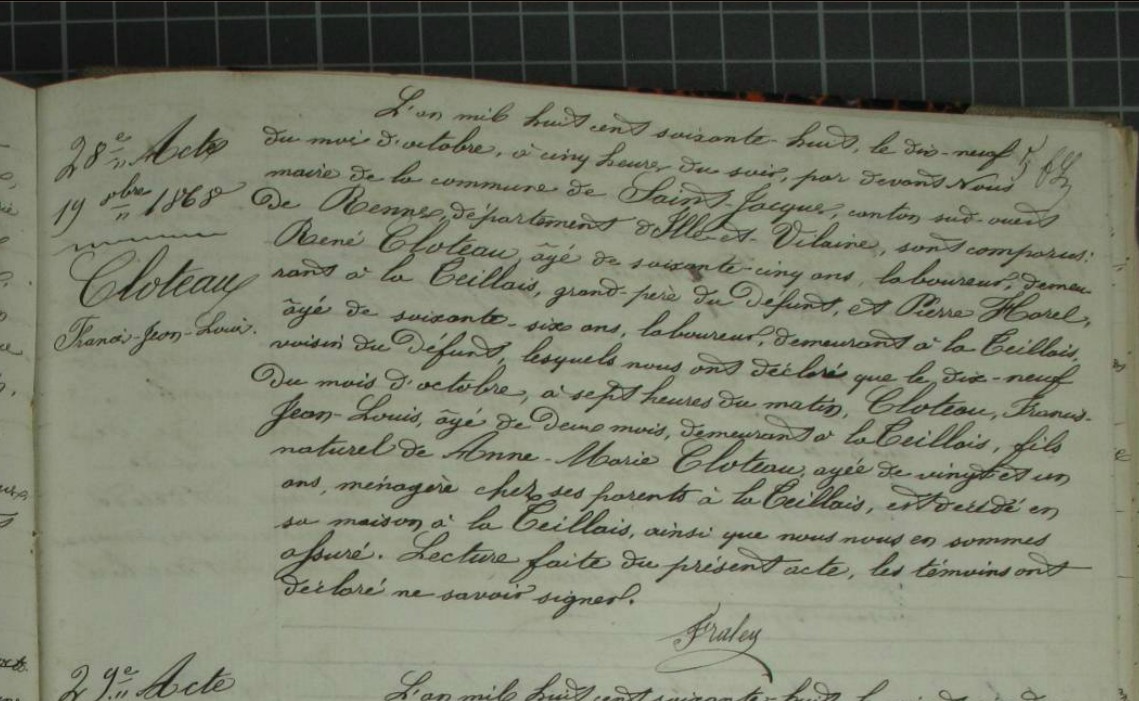 28e Acte
19 8bre 1868
Cloteau
Francis-Jean-Louis.
L'an mil huit cent soixante-huit, le dix-neuf
du mois d'octobre, à cinq heures du soir, par devant Nous
maire de la commune de Saint-Jacques, canton sud-ouest
De Rennes, département d'Ille-et-Vilaine, sont comparus:
René Cloteau, âgé de soixante-cinq ans, laboureur, demeu-
rant à la Teillais, grand-père du Défunt, et Pierre Horel,
âgé de soixante-six ans, laboureur, demeurant à la Teillais,
voisin du Défunt, lesquels nous ont déclaré que le dix-neuf
Du mois d'octobre, à sept heures du matin, Cloteau, Francis-
Jean-Louis, âgé de Deux mois, demeurant à la Teillais, fils
naturel de Anne-Marie Cloteau, agée de vingt et un
ans, ménagère chez ses parents à la Teillais, est décédé en
sa maison à la Teillais, ainsi que nous nous en sommes
assuré. Lecture faite du présent acte, les témoins ont
déclaré ne savoir signer.
29e Acte
L'an mil huit cent soixante-huit